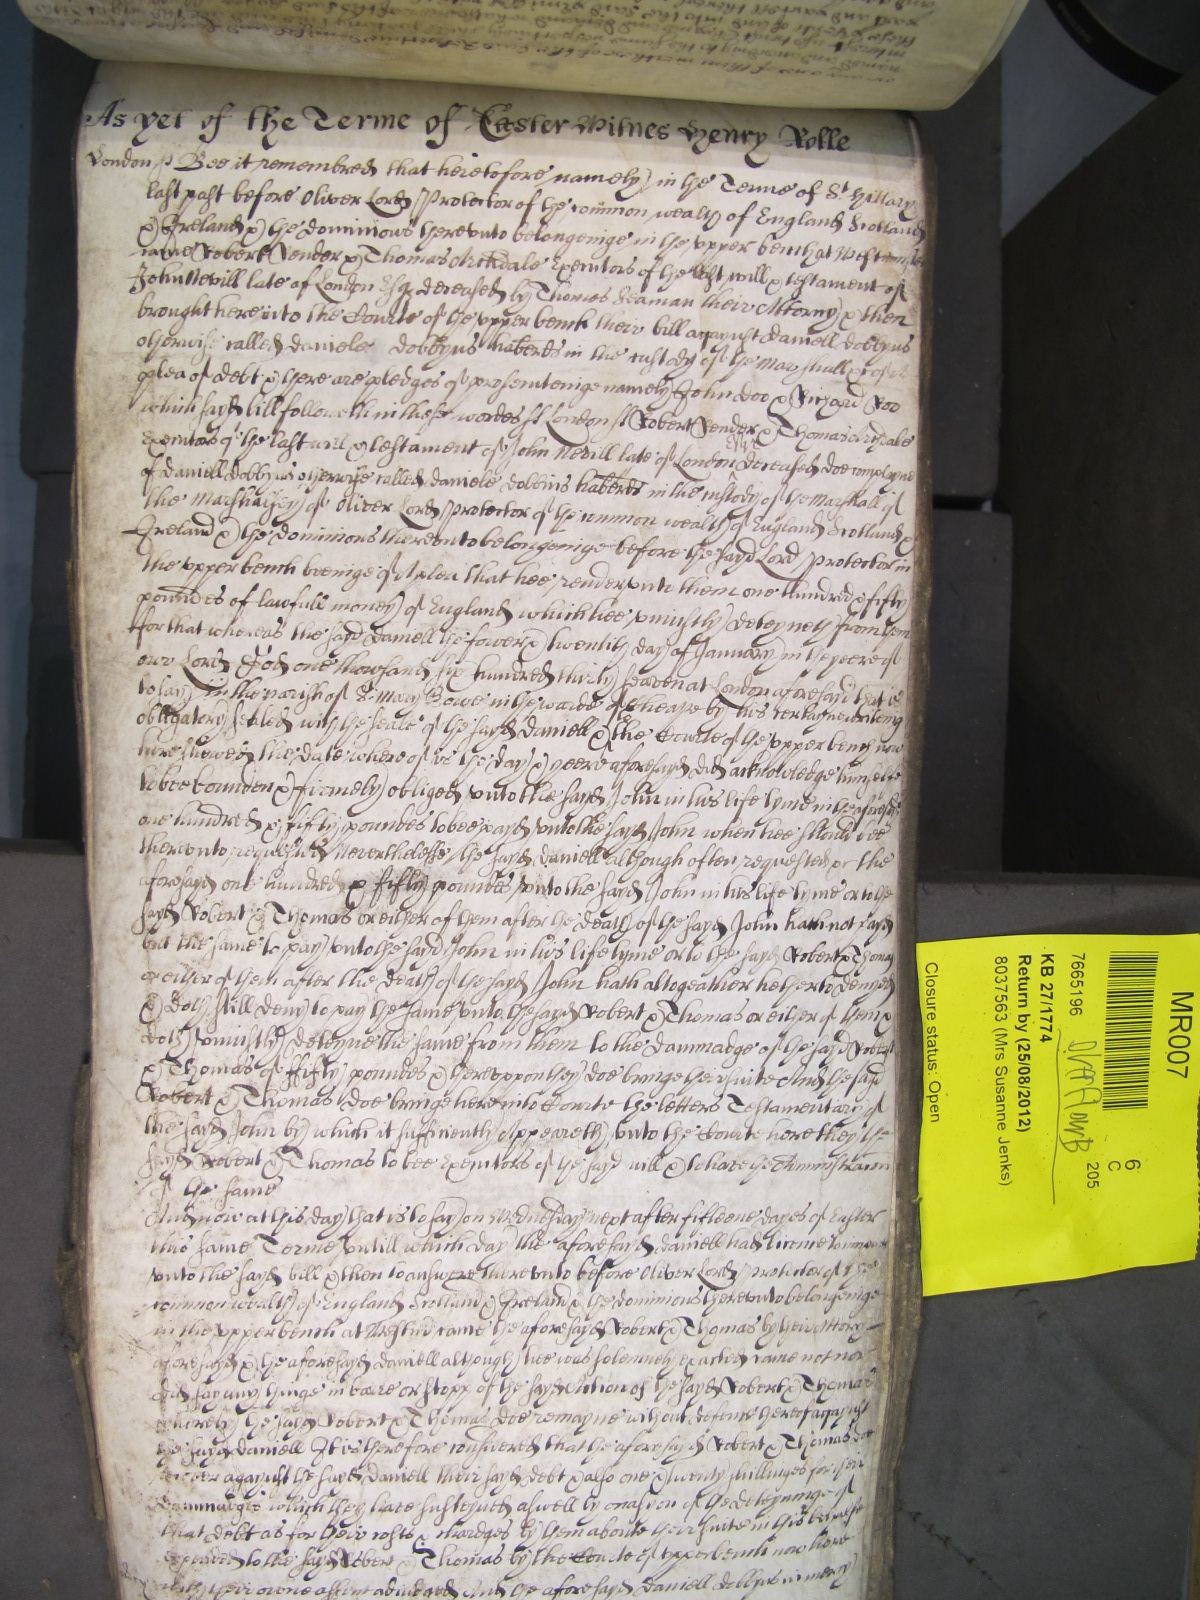 As yet of the Terme of Easter Witnes Henry Rolle
London ss Bee it remembred that heretofore namely in the Terme of St Hillary
last past before Oliver Lord Protector of the common wealth of England Scotland
& Ireland & the dominions thereunto belongeinge in the upper bench at Westminster
came Robert Vender & Thomas Executors of the last will & testament of
John Nevill late of London Esq deceased by Thomas Seaman their Attorny & then
brought here into the Courte of the upper bench their bill against Daniell Dobbyns
otherwise called Daniele Dobbyns haberds in the custody of the Marshall &c of a
plea of debt & there are pledges of prosecuteinge namely John Doo & Richard Roo
which sayd bill followeth in these wordes ss London ss Robert Vender & Thomas
Executors of the last will & testament of John Nevill late of London Esqr deceased doe complayne
of Daniell Dobbyns otherwise called Daniele Dobbins haberds in the custody of the Marshall of
the Marshalsey of Oliver Lord Protector of the common wealth of England Scotland &
Ireland & the dominions thereunto belongeinge before the sayd Lord Protector in
the upper bench beeinge of a plea that hee render unto them one hundred & fifty
poundes of lawfull money of England which hee uniustly deteyneth from them
for that whereas the sayd Daniell the fower & twentith day of January in the yeere of
our Lord God one thowsand six hundred thirty seaven at London aforesayd that is
to say in the parish of St Mary Bowe in the warde of Cheape by his certayne writeing
obligatory sealed with the seale of the sayd Daniell & to the Courte of the upper bench now
here shewed the date whereof is the day & yeere aforesayd did acknowledge himselfe
to bee bounden & firmely obliged unto the sayd John in his life tyme in the aforesayd
one hundred & fifty poundes to bee payd unto the sayd John when hee should bee
thereunto requested Neverthelesse the sayd Daniell although often requested &c the
aforesayd one hundred & fifty poundes unto the sayd John in his life tyme or to the
sayd Robert & Thomas or either of them after the death of the sayd John hath not payd
but the same to pay unto the sayd John in his life tyme or to the sayd Robert & Thomas
or either of them after the death of the sayd John hath altogeather hetherto denyed
& doth still deny to pay the same unto the sayd Robert & Thomas or either of them &
doth uniustly deteyne the same from them to the dammadge of the sayd Robert
& Thomas of fifty poundes & thereuppon they doe bringe their suite And the sayd
Robert & Thomas doe bringe here into Courte the letters Testamentary of
the sayd John by which it sufficiently appeareth unto the Courte here they the
sayd Robert & Thomas to bee Executors of the sayd will & to have the administration
of the same
And now at this day that is to say on Wednesday next after fifteene dayes of Easter
this same Terme untill which day the aforesayd Daniell had licence to imparle
unto the sayd bill & then to answere thereunto before Oliver Lord Protector of the
common wealth of England Scotland & Ireland & the dominions thereunto belongeinge
in the upper bench at Westmr came the aforesayd Robert & Thomas by their Attorny
aforesayd & the aforesayd Daniell although hee was solemnely exacted came not nor
did say any thinge in barre or stopp of the sayd Action of the sayd Robert & Thomas
whereby the sayd Robert & Thomas doe remayne without defence thereof against
the sayd Daniell It is therefore considered that the aforesayd Robert & Thomas doe
recover against the sayd Daniell their sayd debt & also one & twenty shillinges for their
dammadges which they have susteyned aswell by occasion of the deteyninge of
that debt as for their costs & chardges by them aboute their suite in this behalfe
expended to the sayd Robert & Thomas by the Courte of upper bench now here
with their owne assent adiudged And the aforesayd Daniell Dobbyns in mercy
MR007
7665196
6
C
205
KB 27/1774
Return by (25/08/2012)
8037563 (Mrs Susanne Jenks)
Closure status: Open